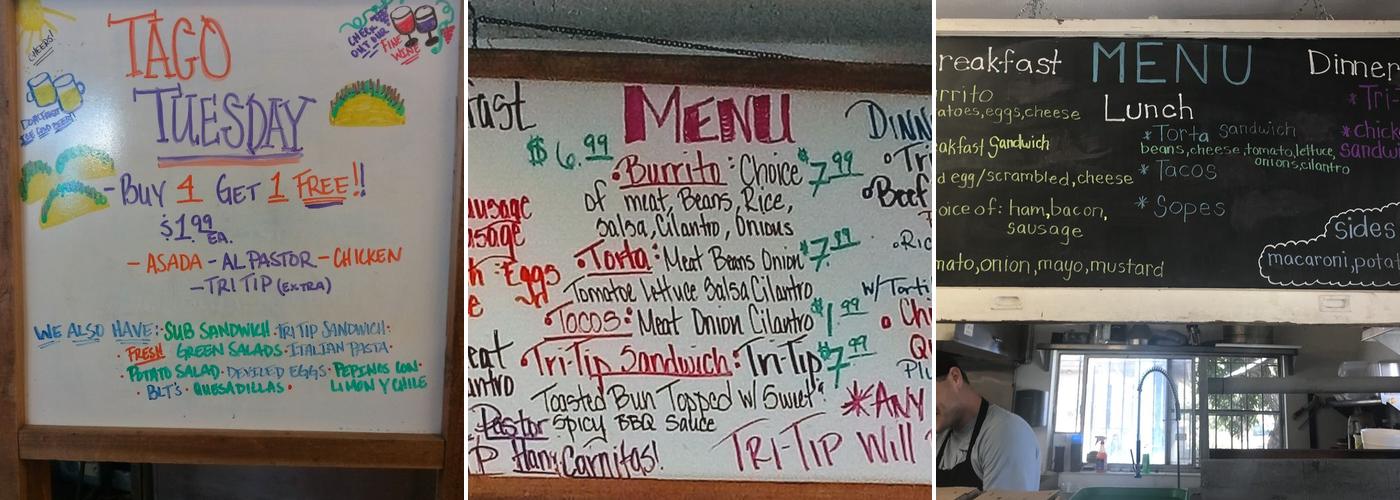 CHEERS!
TACO
TUESDAY
CHECK
OUT OUR
FINE
WINE
ICE COLD BEER!
-BUY 1 GET 1 FREE!!
$1.99
EA.
- ASADA - AL PASTOR - CHICKEN
- TRI TIP (EXTRA)
WE ALSO HAVE: SUB SANDWICH · TRI TIP SANDWICH ·
· FRESH GREEN SALADS · ITALIAN PASTA ·
POTATO SALAD · DEVILED EGGS · PEPINOS CON
· BLT'S · QUESADILLAS · LIMON Y CHILE
fast
MENU
DINN
$6.99
• Burrito: Choice $7.99
of meat, Beans, Rice,
Salsa, Cilantro, Onions
• Torta: Meat Beans Onion $7.99
Tomatoe Lettuce Salsa Cilantro
• Tacos: Meat Onion Cilantro $1.99
• Tri-Tip Sandwich: Tri-Tip $7.99
Toasted Bun Topped w/ Sweet &
Spicy BBQ Sauce
ausage
usage
Eggs
eat
antro
Pastor
Ham, Carnitas!
• Tri
• Beef
• Ric
w/ Torti
• Ch
Qu
*ANY
TRI-TIP WILL
reakfast
MENU
Dinner
Lunch
rrito
atoes, eggs, cheese
akfast Sandwich
d egg/scrambled, cheese
oice of: ham, bacon,
sausage
mato, onion, mayo, mustard
*Torta Sandwich
beans, cheese, tomato, lettuce,
onions, cilantro
* Tacos
* Sopes
*Tri
*chic
sandw
Sides
macaroni, potat